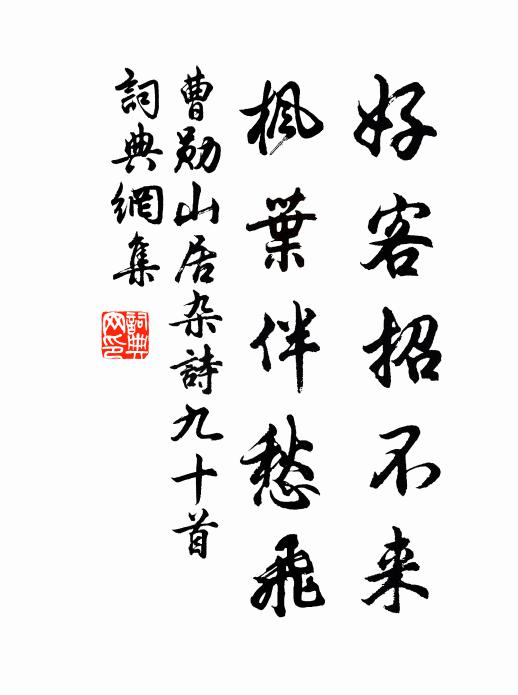 好客招不来
枫葉伴愁飛
曹勋山居杂詩九十首
詞典網集
詞典网印